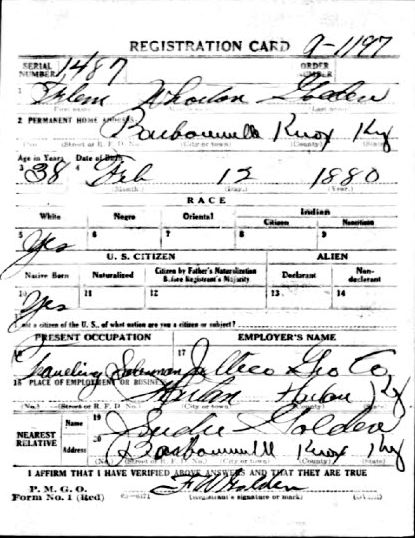 REGISTRATION CARD A-1197
SERIAL NUMBER 1487 ORDER NUMBER
1 Wharton Golden
2 PERMANENT HOME ADDRESS
Barbourville Knox Ky
(No.) (Street or R. F. D. No.) (City or town) (County) (State)
Age in Years Date of Birth
3 38 4 Feb 12 1880
(Month.) (Day.) (Year.)
RACE
White Negro Oriental Indian
Citizen Noncitizen
5 Yes 6 7 8 9
U. S. CITIZEN ALIEN
Native Born Naturalized Citizen by Father's Naturalization Before Registrant's Majority Declarant Non-declarant
10 Yes 11 12 13 14
15 If not a citizen of the U. S., of what nation are you a citizen or subject?
PRESENT OCCUPATION EMPLOYER'S NAME
Traveling Salesman 17 Jellico Gro Co
18 PLACE OF EMPLOYMENT OR BUSINESS
Harlan Harlan Ky
(No.) (Street or R. F. D. No.) (City or town) (County) (State)
NEAREST RELATIVE
Name 19 Golden
Address 20 Barbourville Knox Ky
(No.) (Street or R. F. D. No.) (City or town) (County) (State)
I AFFIRM THAT I HAVE VERIFIED ABOVE ANSWERS AND THAT THEY ARE TRUE
P. M. G. O.
Form No. 1 (Red) F W Golden
(Registrant's signature or mark) (OVER)